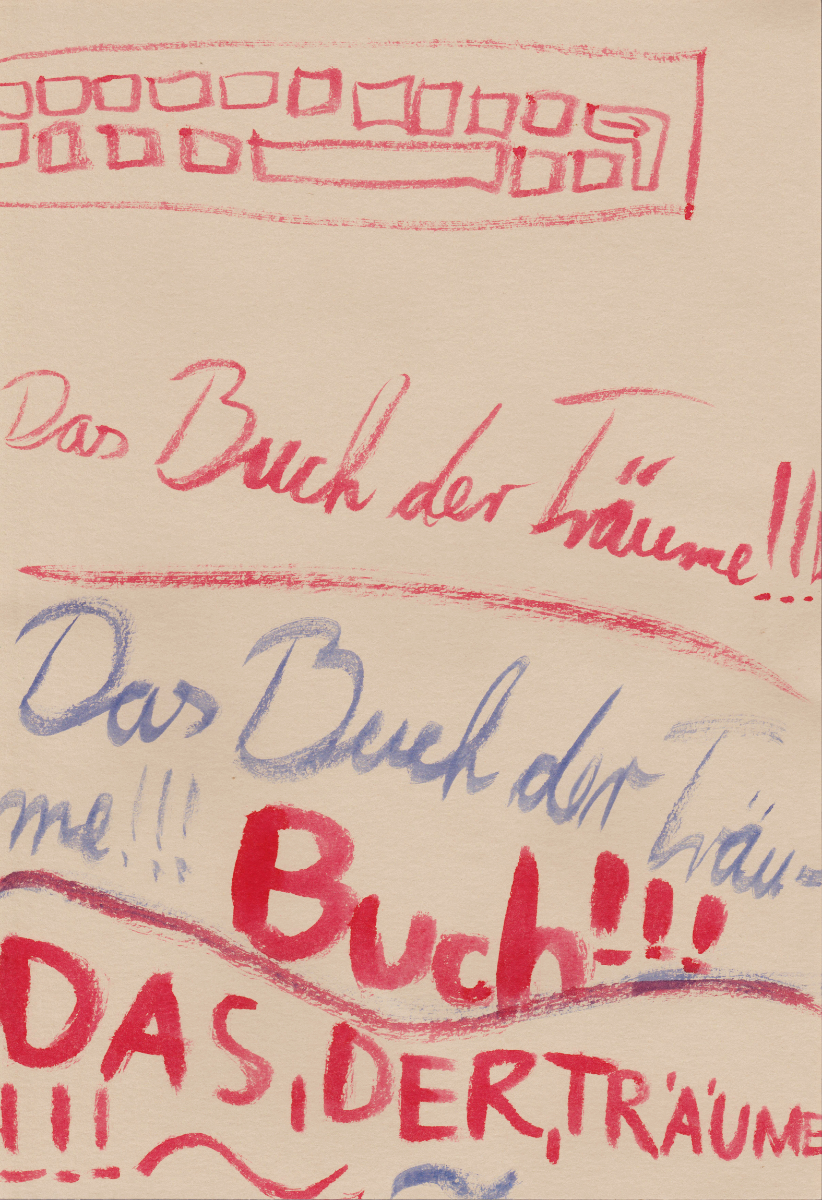 Das Buch der Träume!!!
Das Buch der Träu-
me!!!
Buch!!!
DAS, DER, TRÄUME
!!!